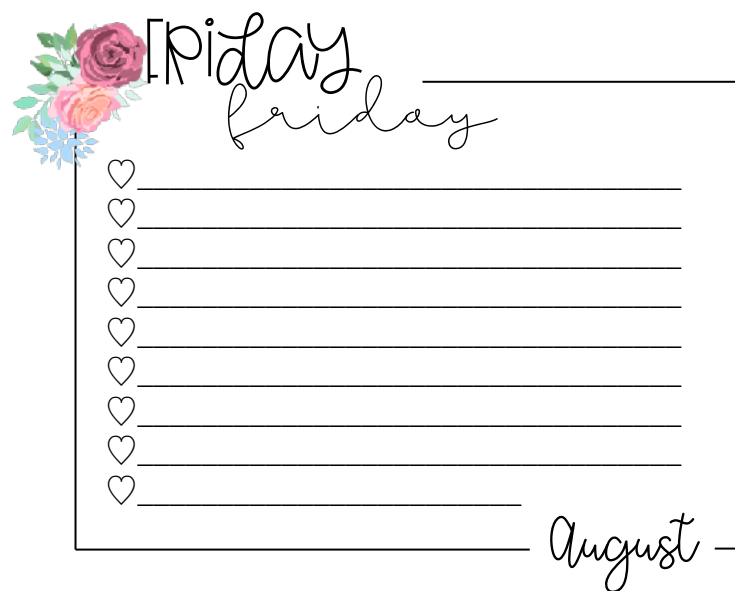 FRiday
friday
august